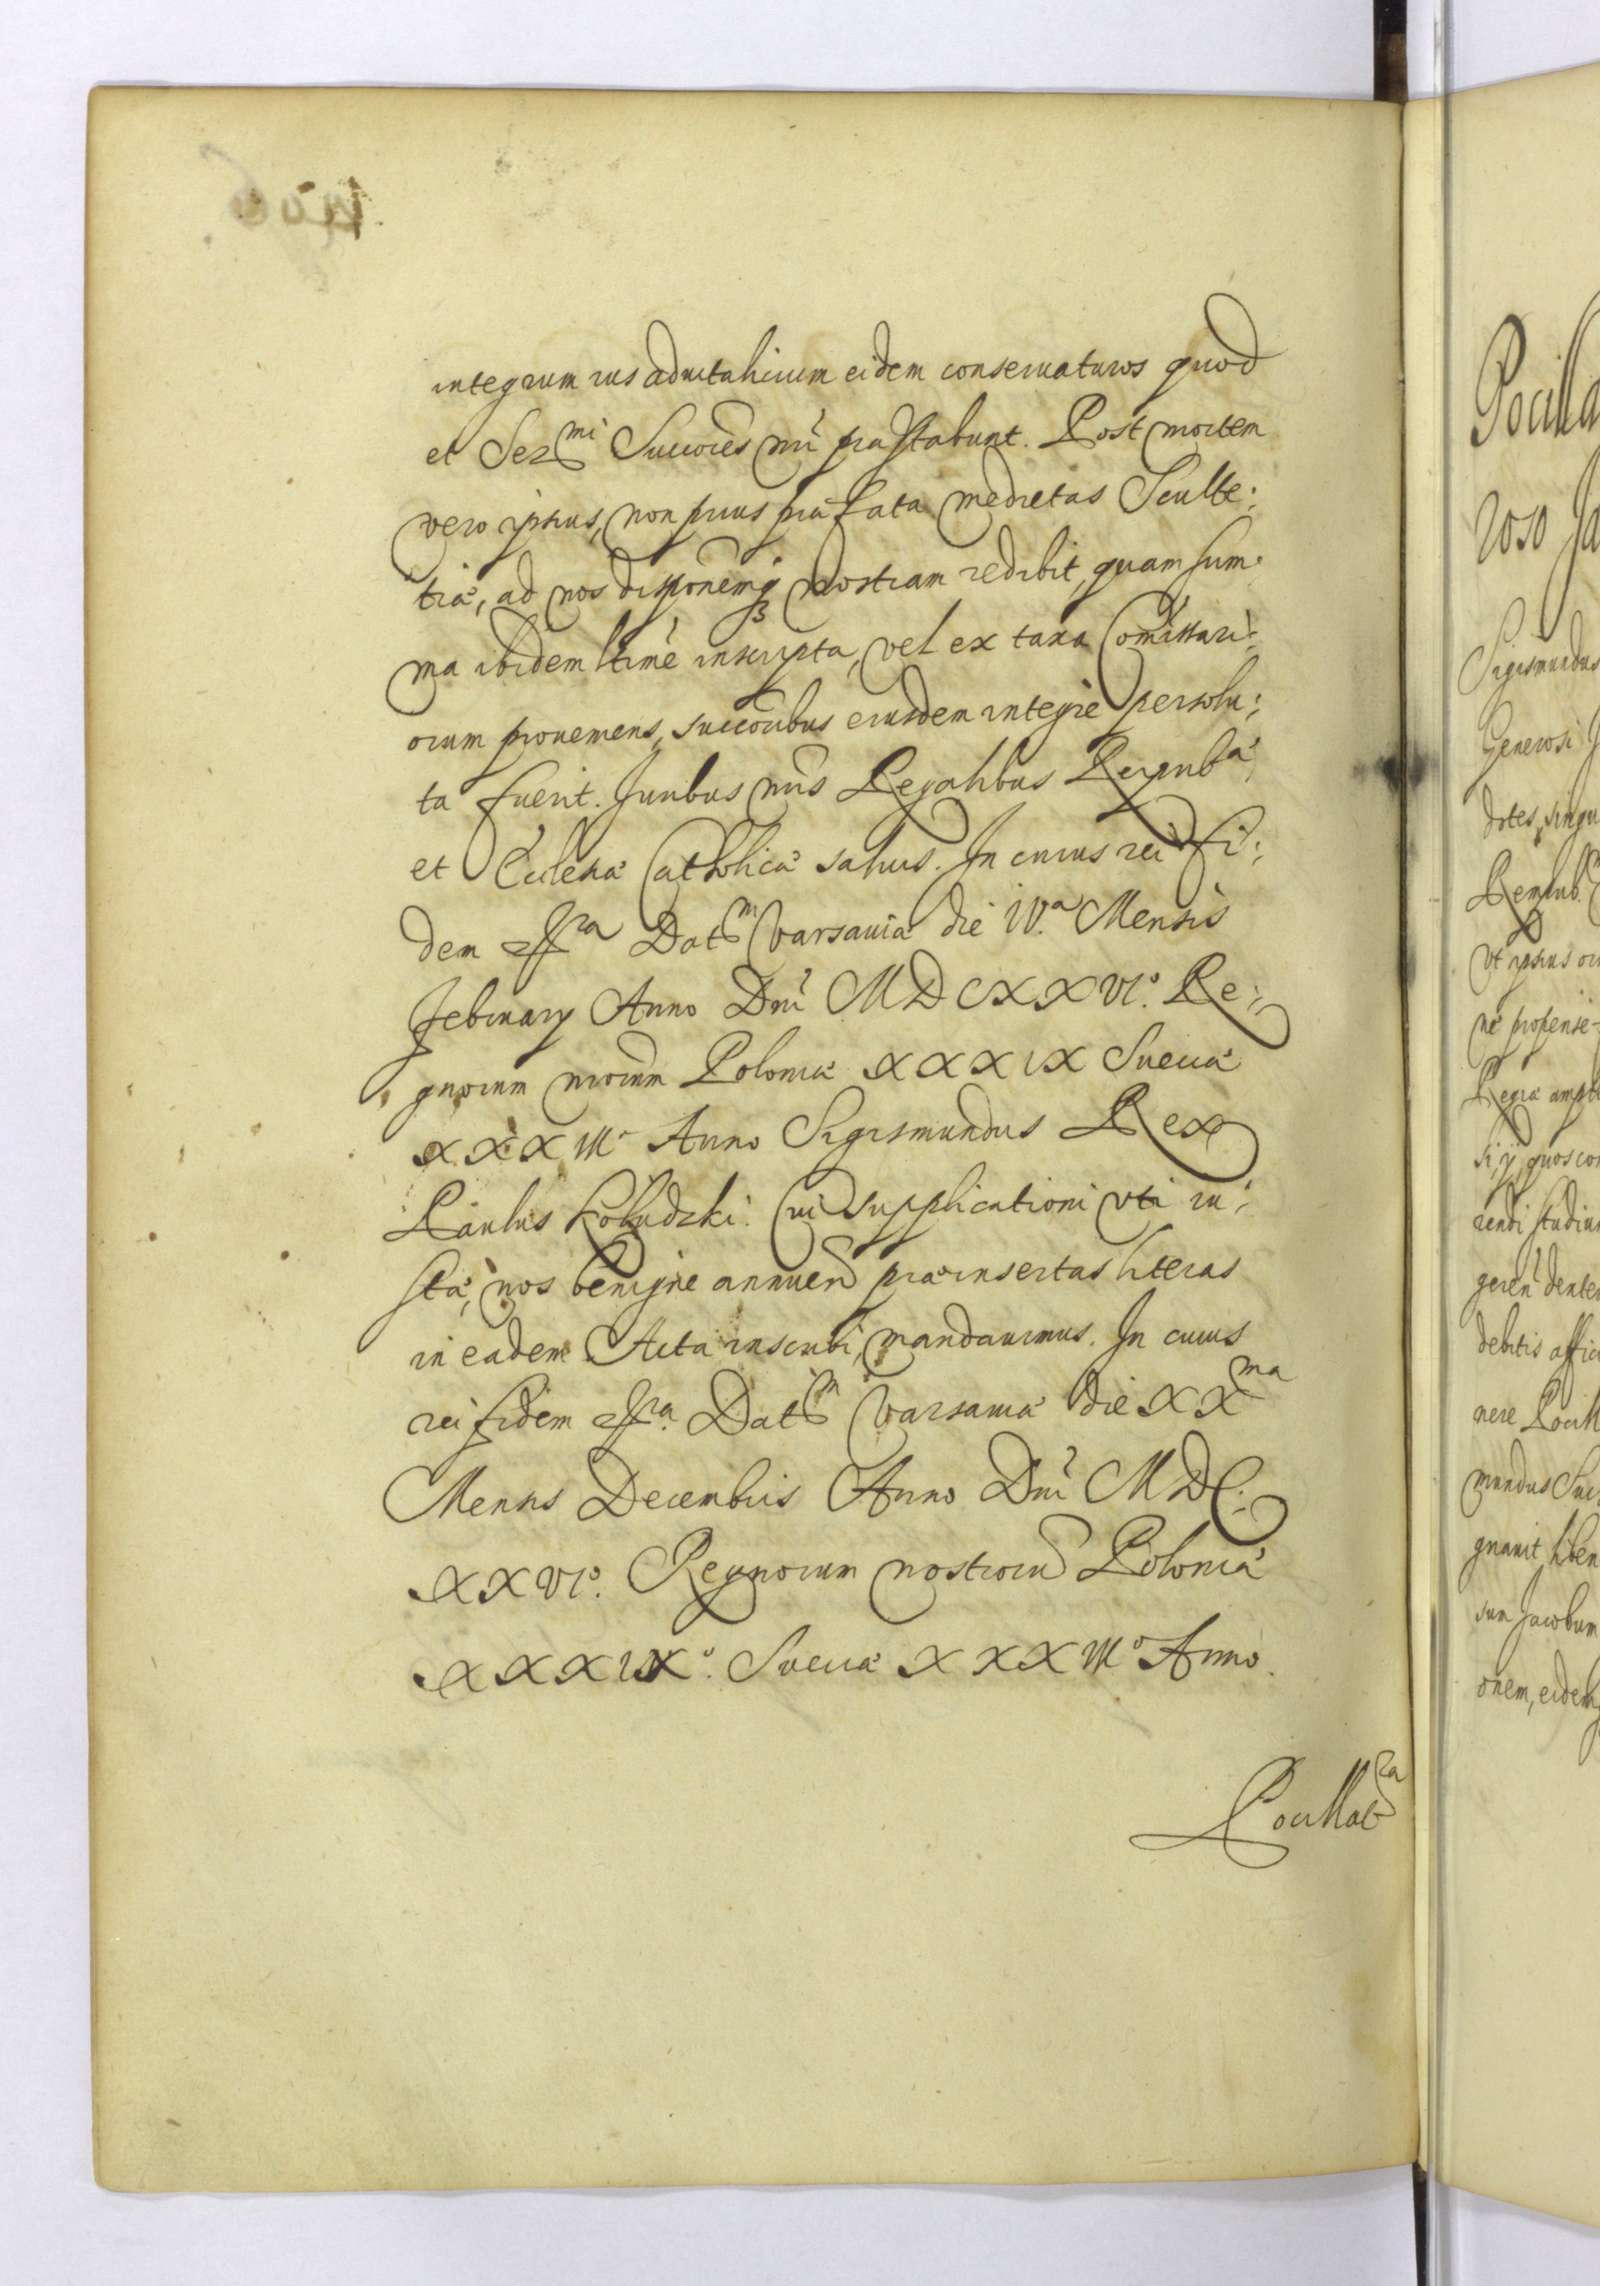 integrum ius aduitalicium eidem conseruaturos quod
et Ser^mi Succores nri praestabunt. Post mortem
vero ipsius, non prius praefata medietas Sculte:
tiae, ad nos disponemq nostram redibit, quam sum:
ma ibidem ltime inscripta, vel ex taxa Comissari:
orum proueniens, succoribus eiusdem integre persolu:
ta fuerit. Juribus nris Regalibus Reipub^ae
et Ecclesiae Catholicae saluis. In cuius rei fi:
dem Dat^m Varsauiae die IV.^a Mensis
Februarij Anno Dni MDCXXVI.^o Re:
gnorum nrorum Poloniae XXXIX Sueciae
XXXIII^o Anno Sigismundus Rex
Paulus Kołudzki. Cui supplicationi vti iu:
stae, nos benigne annuen praeinsertas literas
in eadem Acta inscribi, mandauimus. In cuius
rei fidem Dat^m Varsauiae die XX^ma
Mensis Decembris Anno Dni MDC:
XXVI^o. Regnorum nostroru Poloniae
XXXIX^o. Sueciae XXXIII^o Anno.
Pocilla
roso Ja
Sigismundus
Generosi J
dotes, singu
Reipub.
vt ipsius
ne propense
Regia ampl
si, ij quos con
rendi studiu
geren dente
debitis affici
nere Pocill
mundus Suc
gnauit, liben
sun Jacobum
onem, eidem